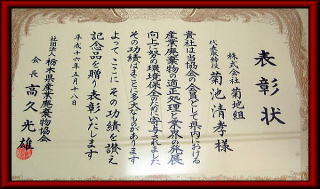 表彰状
株式会社 菊地組
代表取締役 菊池清孝様
貴社は当協会の会員として県内における
産業廃棄物の適正処理と業界の発展
向上に努め環境保全のために寄与されました
その功績はまことに多大なものがあります
よってここにその功績を讃え
記念品を贈り表彰いたします
平成十六年五月十八日
社団法人 栃木県産業廃棄物協会
会長 高久光雄